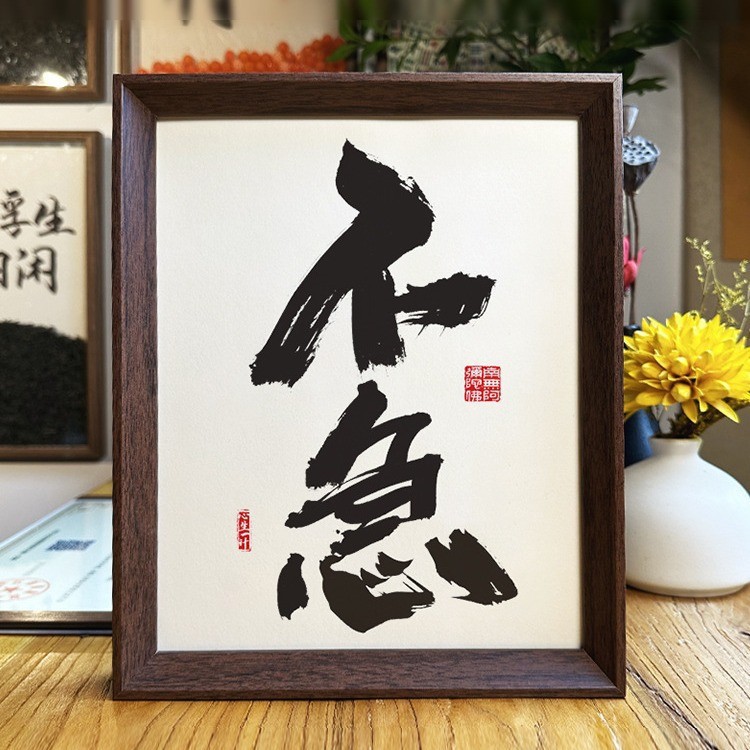 不急
南無阿
彌陀佛
浮生
闲